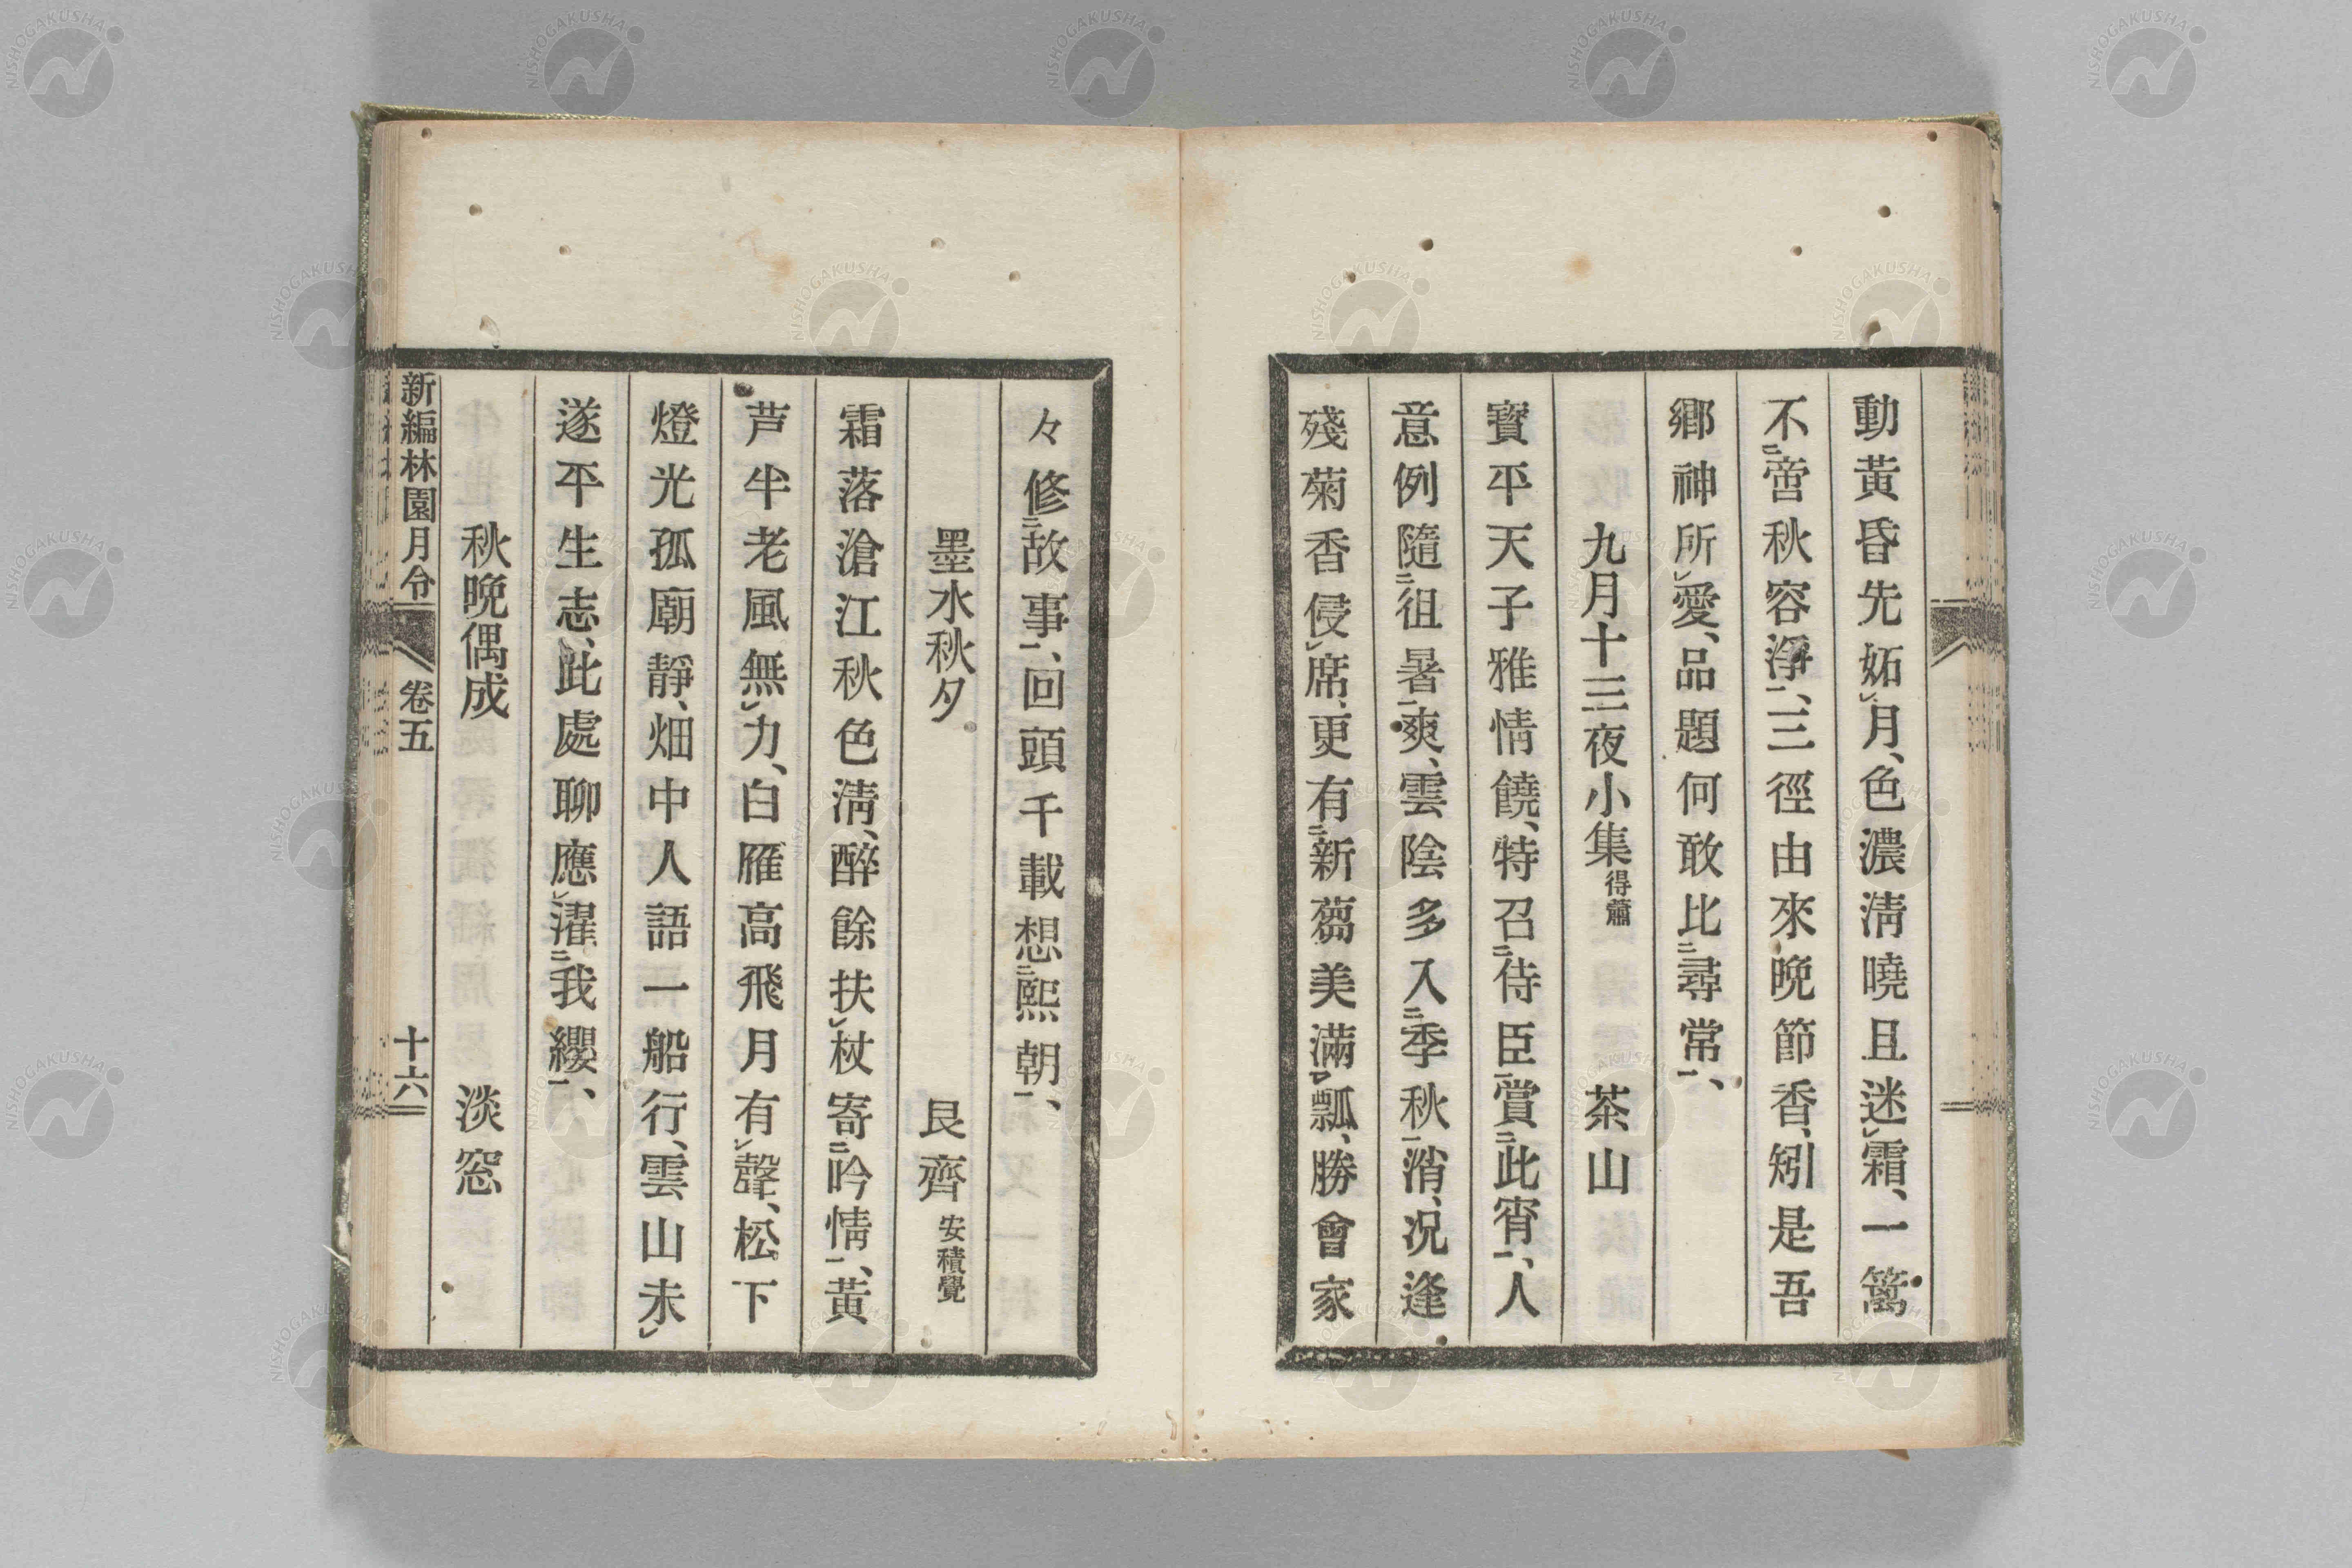 動黃昏先妬㆑月、色濃淸曉且迷㆑霜、一籬
不㆓啻秋容淨㆒、三徑由來晩節香、矧是吾
鄉神所㆑愛、品題何敢比㆓尋常㆒、
九月十三夜小集 得蕭 茶山
寳平天子雅情饒、特召㆓侍臣㆒賞㆓此宵㆒、人
意例隨㆓徂暑㆒爽、雲陰多入㆓季秋㆒消、况逢
殘菊香侵㆑席、更有㆓新蒭美滿㆑瓢、勝會家
々修㆓故事㆒、回頭千載想㆓熙朝㆒、
墨水秋夕 艮齊 安積覺
霜落滄江秋色淸、醉餘扶㆑杖寄㆓吟情㆒、黃
芦半老風無㆑力、白雁高飛月有㆑聲、松下
燈光孤廟靜、畑中人語一船行、雲山未㆑
遂平生志、此處聊應㆑濯㆓我纓㆒、
秋晩偶成 淡窓
新編林園月令 卷五 十六
NISHOGAKUSHA